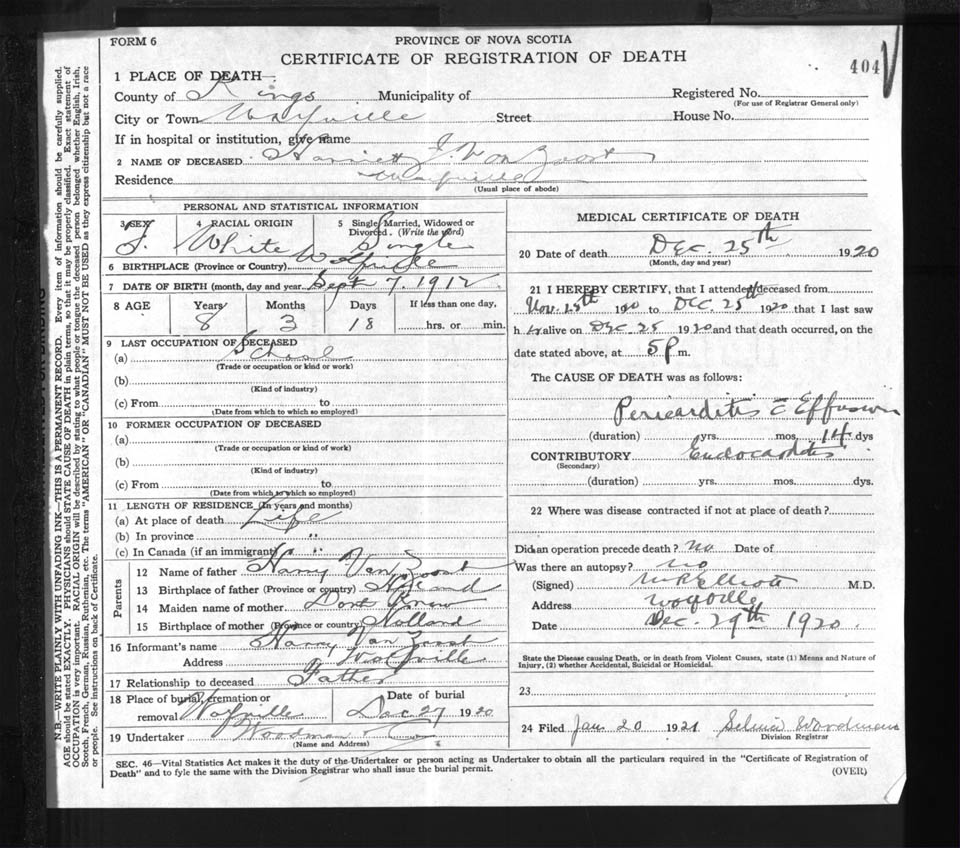 FORM 6
PROVINCE OF NOVA SCOTIA
CERTIFICATE OF REGISTRATION OF DEATH
404
1 PLACE OF DEATH—
County of Kings Municipality of Registered No.
(For use of Registrar General only)
City or Town Wolfville Street House No.
If in hospital or institution, give name
2 NAME OF DECEASED Harriett J. Van Zoost
Residence Wolfville
(Usual place of abode)
PERSONAL AND STATISTICAL INFORMATION
3 SEX 4 RACIAL ORIGIN 5 Single, Married, Widowed or Divorced. (Write the word)
F. White Single
6 BIRTHPLACE (Province or Country) Wolfville
7 DATE OF BIRTH (month, day and year) Sept 7. 1912
8 AGE Years Months Days If less than one day,
8 3 18 hrs. or min.
9 LAST OCCUPATION OF DECEASED
(a) School
(Trade or occupation or kind or work)
(b)
(Kind of industry)
(c) From to
(Date from which to which so employed)
10 FORMER OCCUPATION OF DECEASED
(a)
(Trade or occupation or kind of work)
(b)
(Kind of industry)
(c) From to
(Date from which to which so employed)
11 LENGTH OF RESIDENCE (In years and months)
(a) At place of death Life
(b) In province "
(c) In Canada (if an immigrant) "
Parents
12 Name of father Harry Van Zoost
13 Birthplace of father (Province or country) Holland
14 Maiden name of mother
15 Birthplace of mother (Province or country) Holland
16 Informant's name Harry Van Zoost
Address Wolfville
17 Relationship to deceased Father
18 Place of burial, cremation or removal Wolfville Date of burial Dec 27 1920
19 Undertaker Woodman
(Name and Address)
MEDICAL CERTIFICATE OF DEATH
20 Date of death Dec. 25th 1920
(Month, day and year)
21 I HEREBY CERTIFY, that I attended deceased from
Nov. 25th 1920 to Dec. 25th 1920 that I last saw
h er alive on Dec 25 1920 and that death occurred, on the
date stated above, at 5 p m.
The CAUSE OF DEATH was as follows:
Pericarditis c Effusion
(duration) yrs. mos. 14 dys
CONTRIBUTORY Endocarditis
(Secondary)
(duration) yrs. mos. dys.
22 Where was disease contracted if not at place of death?
Did an operation precede death? no Date of
Was there an autopsy? no
(Signed) Elliott M.D.
Address Wolfville
Date Dec. 29th 1920.
State the Disease causing Death, or in death from Violent Causes, state (1) Means and Nature of Injury, (2) whether Accidental, Suicidal or Homicidal.
23
24 Filed Jan 20 1921 Selina Woodman
Division Registrar
SEC. 46—Vital Statistics Act makes it the duty of the Undertaker or person acting as Undertaker to obtain all the particulars required in the "Certificate of Registration of
Death" and to fyle the same with the Division Registrar who shall issue the burial permit. (OVER)
N.B.—WRITE PLAINLY WITH UNFADING INK—THIS IS A PERMANENT RECORD. Every item of information should be carefully supplied.
AGE should be stated EXACTLY. PHYSICIANS should STATE CAUSE OF DEATH in plain terms, so that it may be properly classified. Exact statement of
OCCUPATION is very important. RACIAL ORIGIN will be described by stating to what people or tongue the deceased person belonged whether English, Irish,
Scotch, French, German, Russian, Ruthenian, etc. The terms "AMERICAN" or "CANADIAN" MUST NOT BE USED as they express citizenship but not a race
or people. See instructions on back of Certificate.